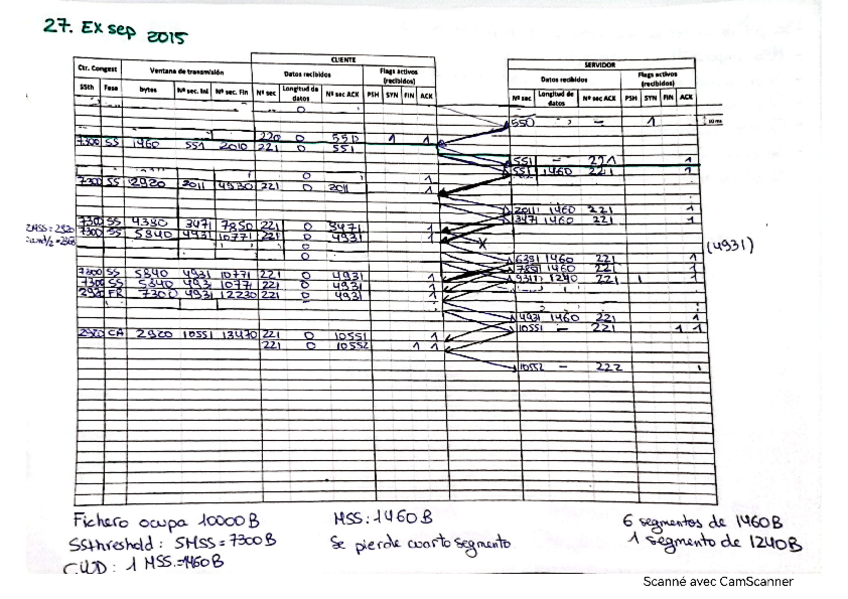 27. EX sep 2015
CLIENTE
SERVIDOR
Ctr. Congest
Ventana de transmisión
Datos recibidos
Flags activos (recibidos)
Datos recibidos
Flags activos (recibidos)
SSth Fase bytes Nº sec. Ini Nº sec. Fin Nº sec Longitud de datos Nº sec ACK PSH SYN FIN ACK
Nº sec Longitud de datos Nº sec ACK PSH SYN FIN ACK
0
550 - 1
220 0 550 1 1
7300 SS 1460 551 2010 221 0 551
551 - 221 1
551 1460 221 1
0 1
7300 SS 2920 2011 4930 221 0 2011 1
2011 1460 221 1
3471 1460 221 1
7300 SS 4380 3471 7850 221 0 3471 1
7300 SS 5840 4931 10771 221 0 4931 1
X
(4931)
0
0
6391 1460 221 1
7851 1460 1
9311 1240 221 1 1
7300 SS 5840 4931 10771 221 0 4931 1
7300 SS 5840 4931 10771 221 0 4931 1
2920 FR 7300 4931 12230 221 0 4931 1
4931 1460 221 1
10551 - 221 1 1
2920 CA 2920 10551 13470 221 0 10551 1
221 0 10552 1 1
10552 - 222 1
Fichero ocupa 10000B
MSS: 1460B
6 segmentos de 1460B
SSthreshold: 5MSS=7300B
Se pierde cuarto segmento
1 segmento de 1240B
1 MSS=1460B
Scanné avec CamScanner